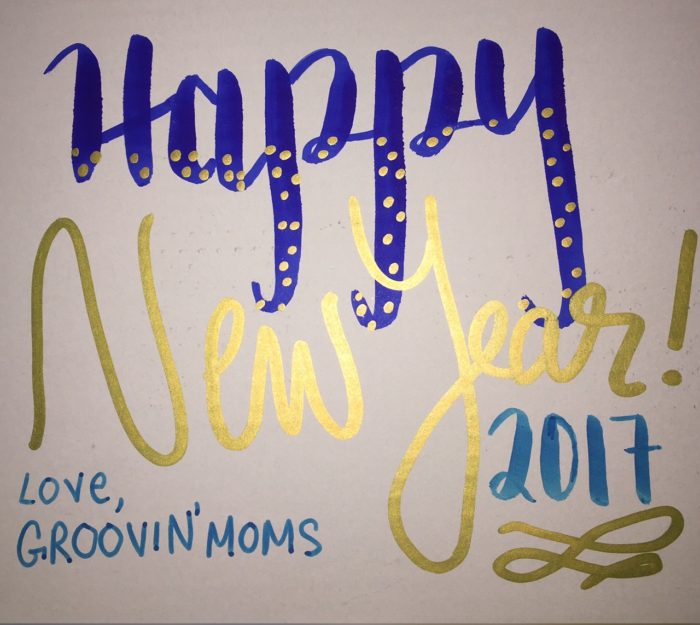 Happy
New Year!
2017
Love,
GROOVIN' MOMS